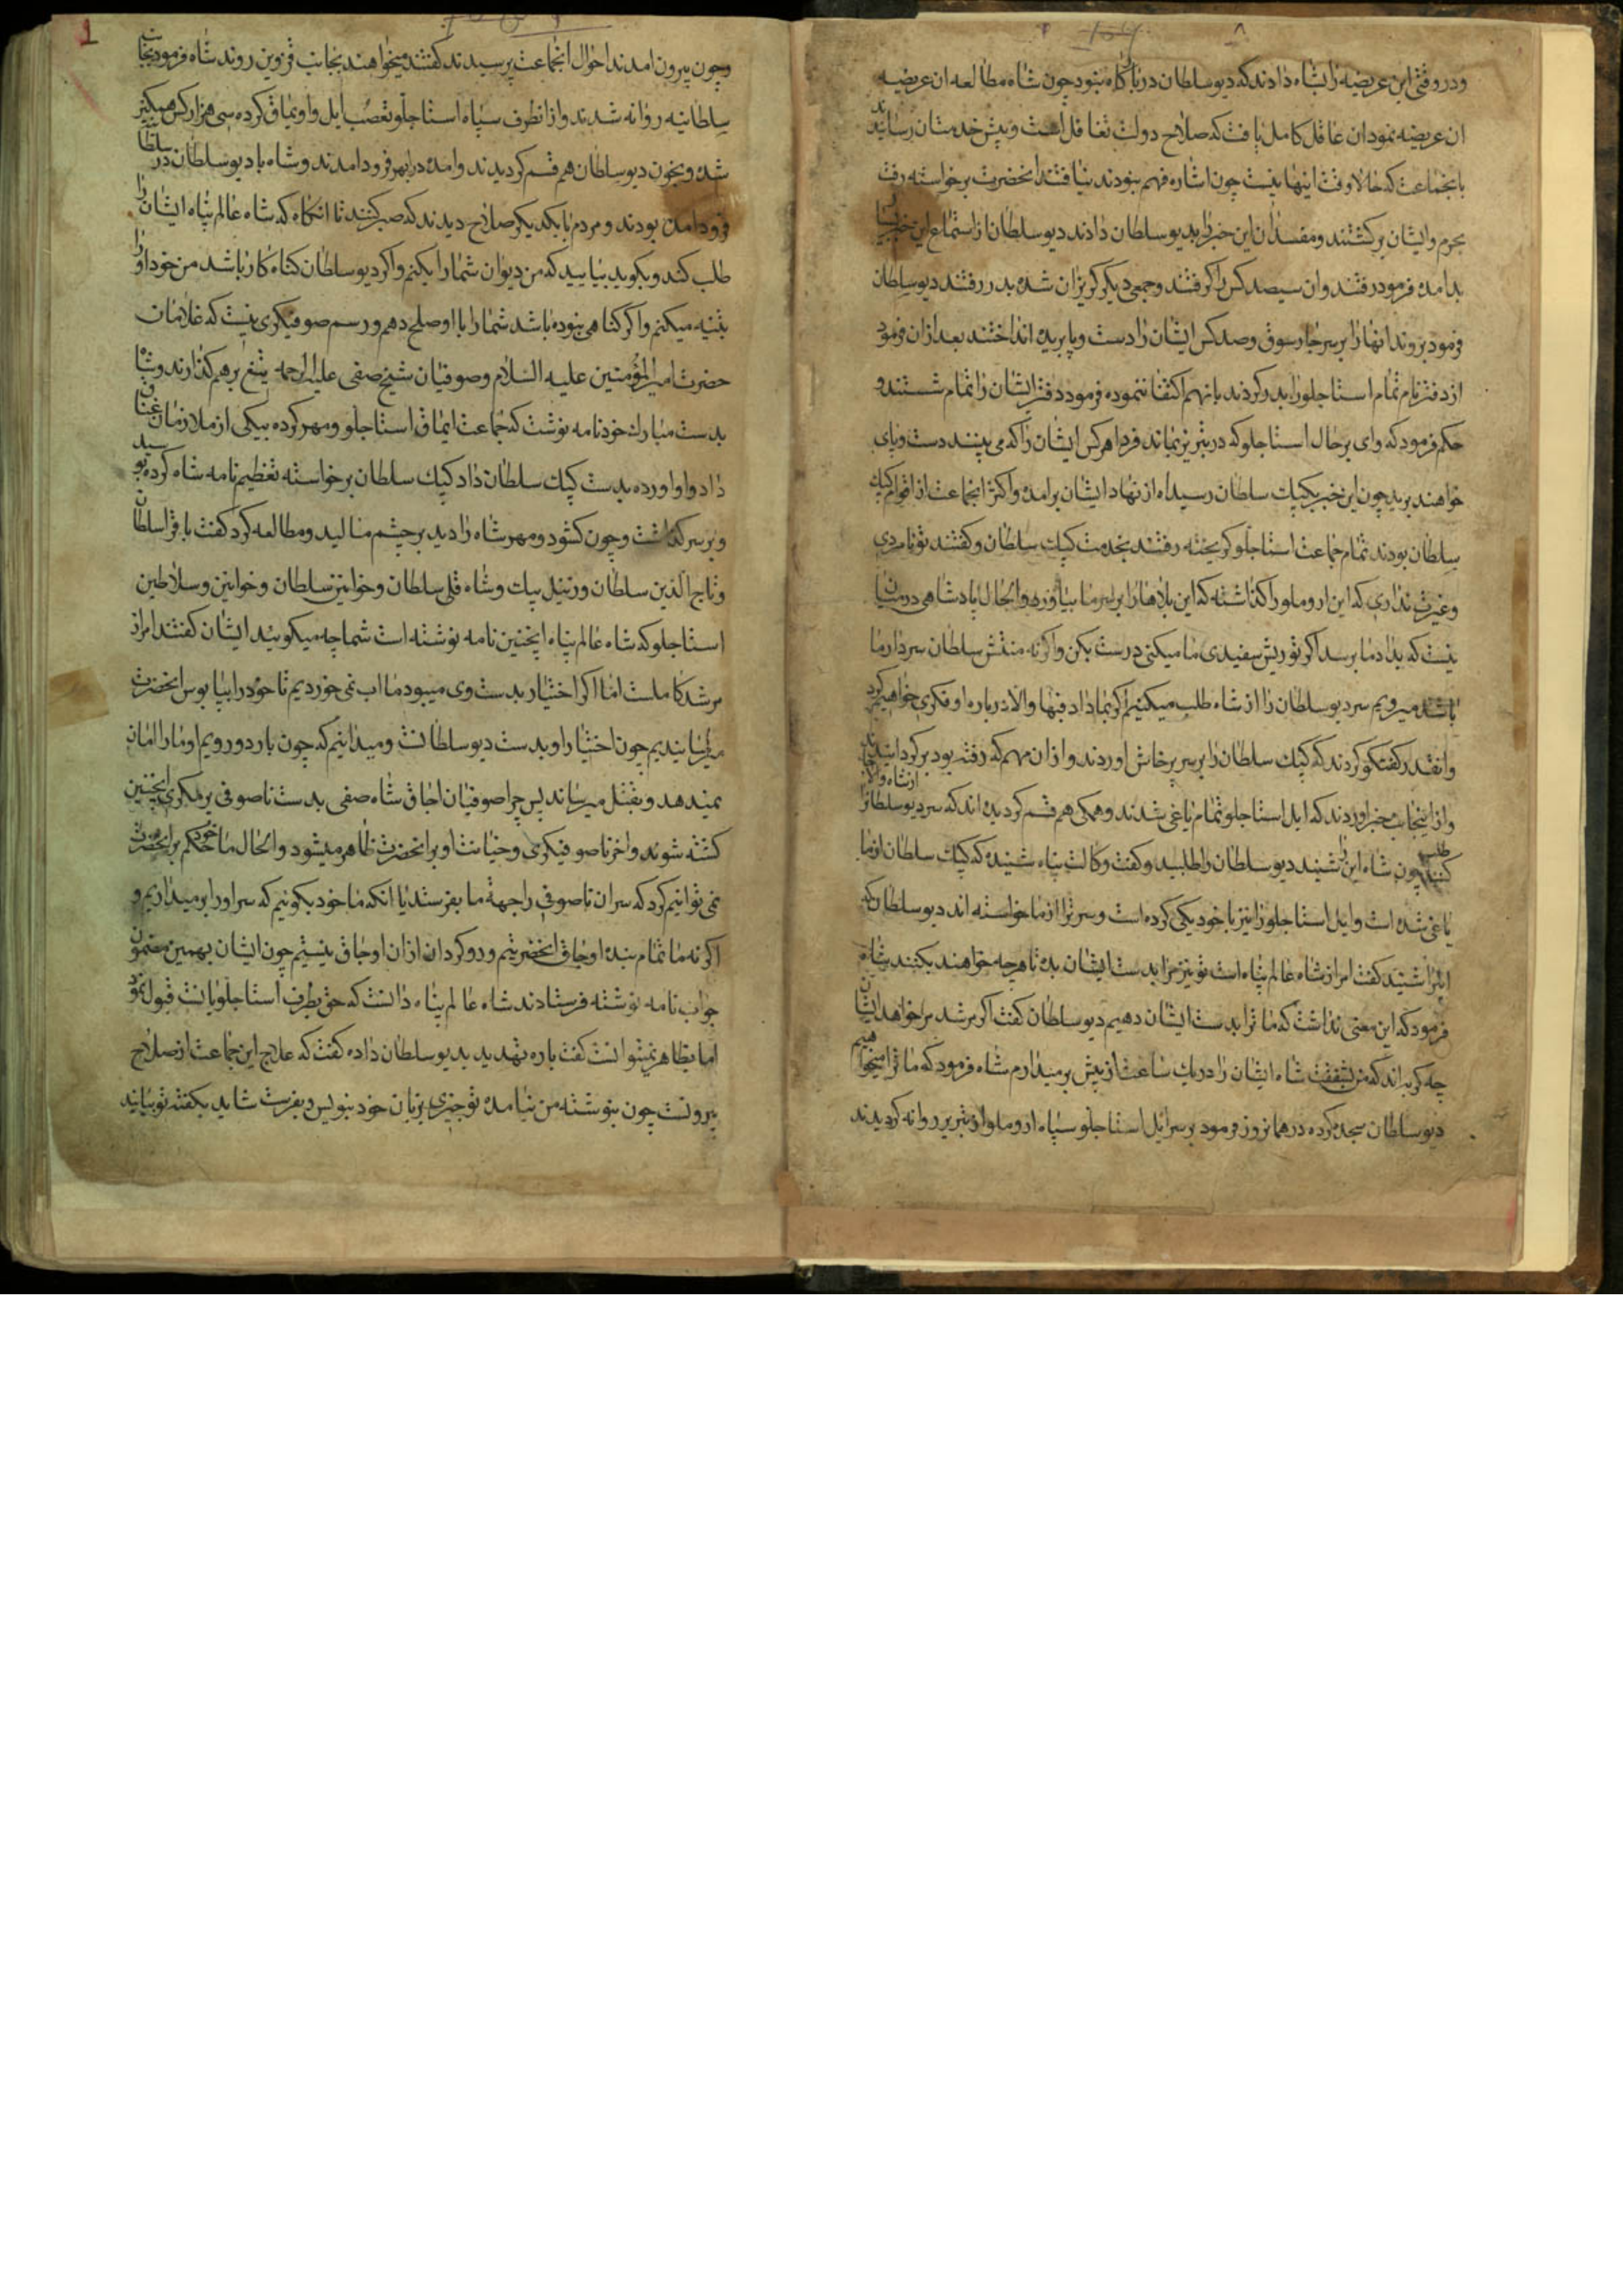 ودر وقتی این عریضه را بشاه دادند که دیو سلطان در بارگاه نبود چون شاه مطالعه ان عریضه
ان عریضه نمود ان عاقل کامل یافت که صلاح دولت تغافل است و پیش خدمتان رسانیدند
بانجماعت که حالا وقت اینها نیست چون اشاره فهم نبودند نیافتند انحضرت برخواسته رفت
بحرم و ایشان برکشتند و مفسدان این خبر را بدیو سلطان دادند دیو سلطان از استماع این خبر
بدر امده فرمود رفتند وان سیصد کس را کرفتند وجمعی دیکر کریزان شده بدر رفتند دیو سلطان
فرمود بروند انها را بر سر چار سوق و صد کس ایشان را دست و پا بریده انداختند بعد از ان فرمود
از دفتر نام تمام استاجلو را بدر کردند بانهم اکتفا ننموده فرمود دفتر ایشان را تمام شستند و
حکم فرمود که وای بر حال استاجلو که در تبریز بماند فردا هر کس ایشان را که می بینند دست و پای
خواهند برید چون این خبر بکپک سلطان رسید اه از نهاد ایشان برامد و اکثر انجماعت از اقوام کپک
سلطان بودند تمام جماعت استاجلو کریخته رفتند بخدمت کپک سلطان و کفتند تو نامردی
و غیرت نداری که این اروملو را کذاشته که این بلاها را بر سر ما بیاورد و الحال پادشاهی در میان
نیست که بداد ما برسد اکر تو ریش سفیدی ما میکنی درست بکن واکر نه منتش سلطان سردار ما
باشد میرویم سر دیو سلطان را از شاه طلب میکنیم اکر بما داد فبها والا در باره او فکری خواهیم کرد
وانقدر کفتکو کردند که کپک سلطان را بر سر پرخاش اوردند و از ان مهم که رفته بود برکردانیدند
و از اینجانب خبر اوردند که ایل استاجلو تمام یاغی شدند و همکی هم قسم کردیده اند که سر دیو سلطانرا از شاه والا
طلب کنند چون شاه این را شنید دیو سلطان را طلبید و کفت وکالت پناه شنیده که کپک سلطان از ما
یاغی شده است و ایل استاجلو را نیز با خود یکی کرده است و سر ترا از ما خواسته اند دیو سلطان که
اینرا شنید کفت امر از شاه عالم پناه است تو نیز مرا بدست ایشان بده تا هر چه خواهند بکنند شاه
فرمود که این معنی نداشت که ما ترا بدست ایشان دهیم دیو سلطان کفت اکر مرشد مرا خواهد ایشان
چه کربه اند که من بشفقت شاه ایشان را در یک ساعت از پیش بر میدارم شاه فرمود که ما ترا میخواهیم
دیو سلطان سجده کرده در همانروز فرمود بر سر ایل استاجلو سپاه اروملو از تبریز روانه کردیدند
وچون بیرون امدند احوال انجماعت پرسیدند کفتند میخواهند بجانب قزوین روند شاه فرمود بجانب
سلطانیه روانه شدند و از انطرف سپاه استاجلو تعصب ایل و اویماق کرده سی هزار کس همکیتر
شده و بخون دیو سلطان هم قسم کردیدند و امده در ابهر فرود امدند و شاه با دیو سلطان در سلطا
فرود امده بودند و مردم با یکدیکر صلاح دیدند که صبر کنند تا انکاه که شاه عالم پناه ایشان را
طلب کند و بکوید بیایید که من دیوان شما را بکنم و اکر دیو سلطان کناه کار باشد من خود او را
تنبیه میکنم و اکر کناهی نبوده باشد شما را با او صلح دهم و رسم صوفیکری نیست که غلامان
حضرت امیر المؤمنین علیه السلام و صوفیان شیخ صفی علیه الرحمه تیغ بر هم کذارند و شاه
بدست مبارک خود نامه نوشت که جماعت ایماق استاجلو و مهر کرده بیکی از ملازمان
داد و او اورده بدست کپک سلطان داد کپک سلطان برخواسته تعظیم نامه شاه کرده بوسید
و بر سر کذاشت و چون کشود و مهر شاه را دید بر چشم مالید و مطالعه کرد کفت با قرا سلطان
و تاج الدین سلطان و بدیل بیک و شاه قلی سلطان و خوانین سلطان و خوانین و سلاطین
استاجلو که شاه عالم پناه اینچنین نامه نوشته است شما چه میکویید ایشان کفتند امر از
مرشد کاملست اما اکر اختیار بدست وی میبود ما اب نمی خوردیم تا خود را بپا بوس انحضرت
میرسانیدیم چون اختیار او بدست دیو سلطانت و میدانیم که چون باردو رویم او ما را امان
نمیدهد و بقتل میرساند پس چرا صوفیان اجاق شاه صفی بدست ناصوفی بر مکری اینچنین
کشته شوند و اخر ناصوفیکری و خیانت او بر انحضرت ظاهر میشود و الحال ما خود حکم بر انحضرت
نمی توانیم کرد که سر ان ناصوفی را جهة ما بفرستد یا انکه ما خود بکوئیم که سر او را بر میداریم و
اکر نه ما تمام بنده اوجاق انحضرتیم و رو کردان از ان اوجاق نیستیم چون ایشان بهمین مضمون
جواب نامه نوشته فرستادند شاه عالم پناه دانست که حق بطرف استاجلویانت قبول نمود
اما بظاهر نمیتوانست کفت باره تهدید بدیو سلطان داده کفت که علاج این جماعت از صلاح
بیرونست چون بنوشته من نیامده تو چیزی بزبان خود بنویس و بفرست شاید بکفته تو بیایند